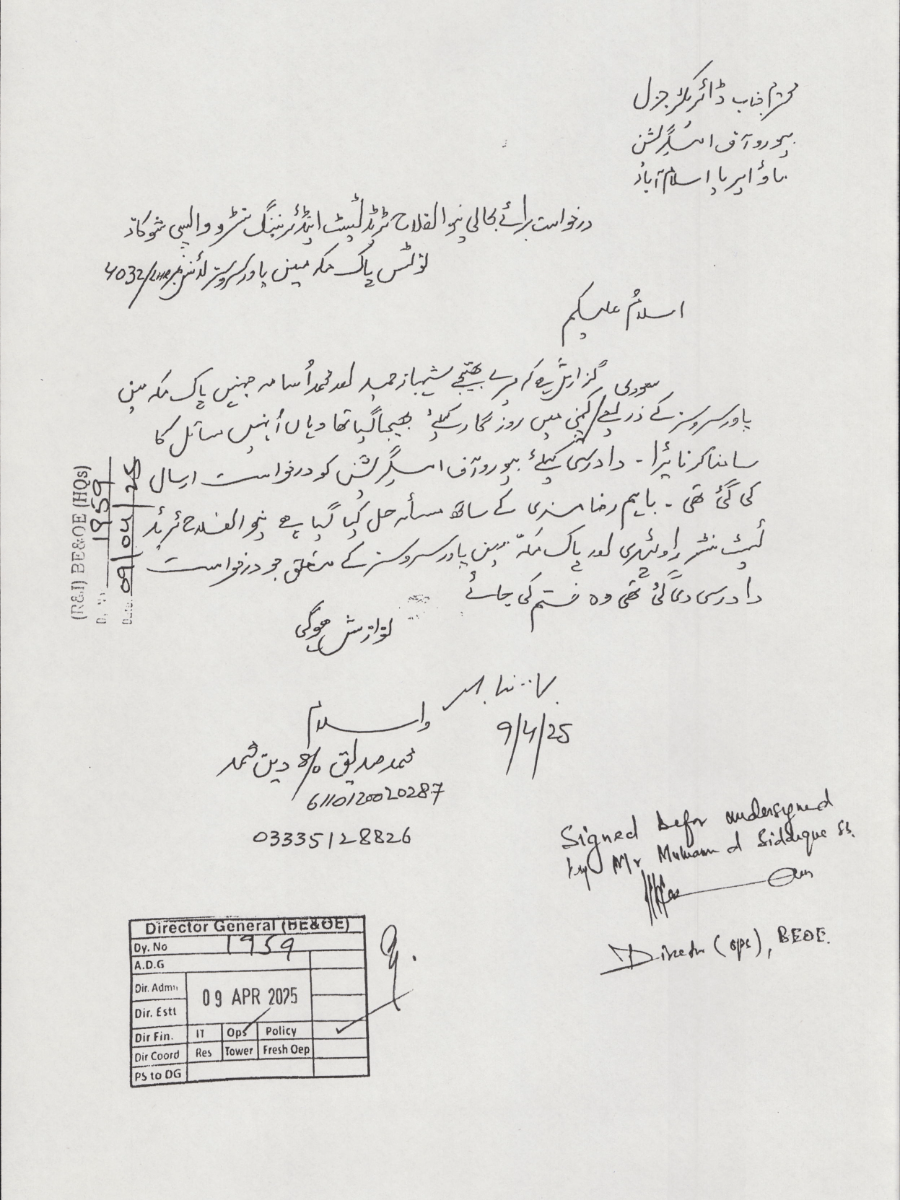 محترم جناب ڈائریکٹر جنرل
بیورو آف امیگریشن
ماؤ ایریا اسلام آباد
درخواست برائے بحالی نیو الفلاح ٹریڈ ٹیسٹ اینڈ ٹریننگ سنٹر و واپسی شوکاز
نوٹس پاک مکہ مین پاور سروسز لائسنس نمبر 4032/LHR
اسلام علیکم
گزارش ہے کہ میرے بھتیجے شہباز حمید اور محمد اُسامہ جنہیں پاک مکہ مین
پاور سروسز کے ذریعے سعودی کمپنی میں روزگار کیلئے بھیجا گیا تھا وہاں اُنہیں مسائل کا
سامنا کرنا پڑا ۔ دادرسی کیلئے بیورو آف امیگریشن کو درخواست ارسال
کی گئی تھی ۔ باہم رضا مندی کے ساتھ مسئلہ حل کیا گیا ہے نیو الفلاح ٹریڈ
ٹیسٹ سنٹر راولپنڈی اور پاک مکہ مین پاور سروسز کے متعلق جو درخواست
دادرسی دی گئی تھی وہ ختم کی جائے
نوازش ہوگی
9/4/25
واسلام
محمد صدیق S/o دین محمد
6110120020287
03335128826
(R&I) BE&OE (HQs)
D. No 1959
Date. 09/04/25
Signed befor undersigned
by Mr Muhammad Siddique
Director (ops), BEOE.
Director General (BE&OE)
Dy. No 1959
A.D.G
Dir. Admn
09 APR 2025
Dir. Estt
Dir Fin. IT Ops Policy
Dir Coord Res Tower Fresh Oep
PS to DG